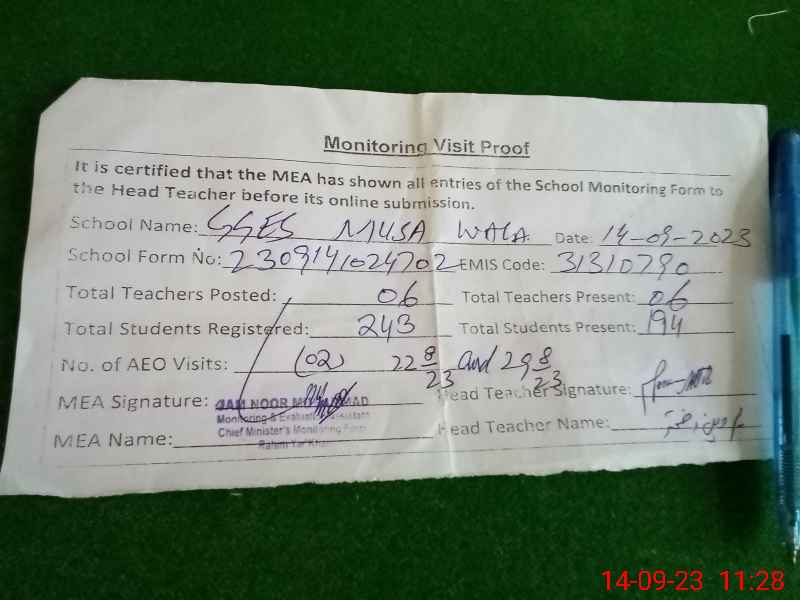 Monitoring Visit Proof
It is certified that the MEA has shown all entries of the School Monitoring Form to
the Head Teacher before its online submission.
School Name: GGES MUSA WALA Date: 14-09-2023
School Form No: 2309141024702 EMIS Code: 31310790
Total Teachers Posted: 06 Total Teachers Present: 06
Total Students Registered: 243 Total Students Present: 194
No. of AEO Visits: (02) 22 8/23 and 29 8/23
MEA Signature: JAM NOOR Head Teacher Signature:
Monitoring & Evaluation Assistant
Chief Minister's Monitoring Force
MEA Name: Rahim Yar Khan Head Teacher Name:
14-09-23 11:28